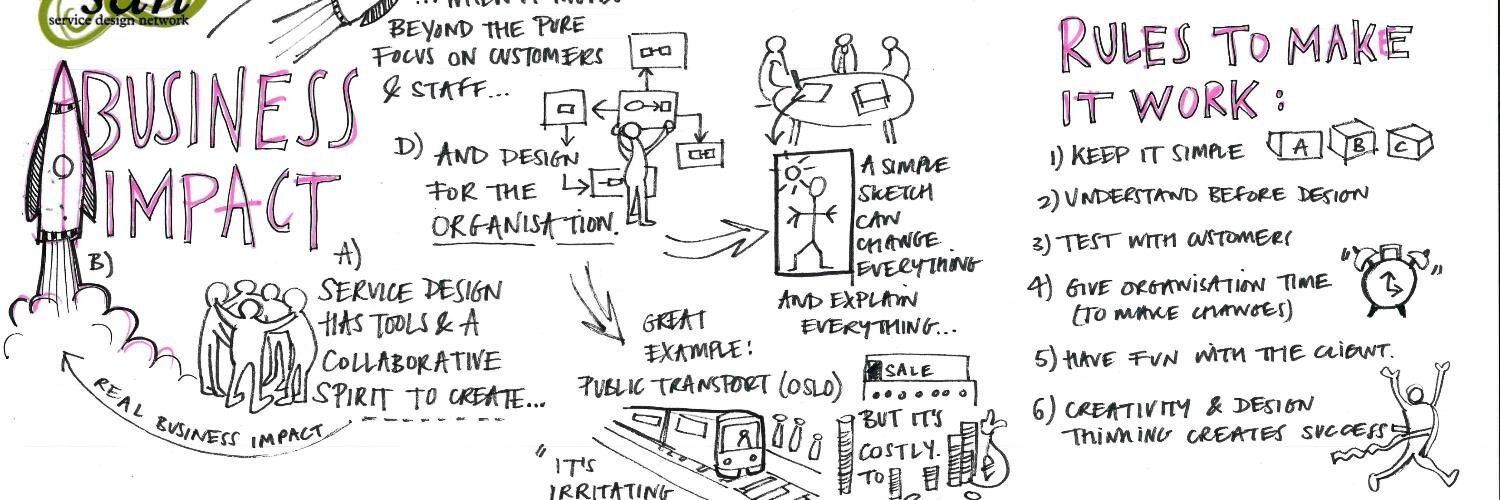 san
service design network
BUSINESS
IMPACT
...WHEN IT MOVES
BEYOND THE PURE
FOCUS ON CUSTOMERS
& STAFF...
D) AND DESIGN
FOR THE
ORGANISATION.
B)
A)
SERVICE DESIGN
HAS TOOLS & A
COLLABORATIVE
SPIRIT TO CREATE...
REAL BUSINESS IMPACT
A SIMPLE
SKETCH
CAN
CHANGE
EVERYTHING
AND EXPLAIN
EVERYTHING...
GREAT
EXAMPLE:
PUBLIC TRANSPORT (OSLO)
SALE
BUT IT'S
COSTLY.
TO
"IT'S
IRRITATING
RULES TO MAKE
IT WORK:
1) KEEP IT SIMPLE
A B C
2) UNDERSTAND BEFORE DESIGN
3) TEST WITH CUSTOMERS
4) GIVE ORGANISATION TIME
(TO MAKE CHANGES)
5) HAVE FUN WITH THE CLIENT.
6) CREATIVITY & DESIGN
THINKING CREATES SUCCESS